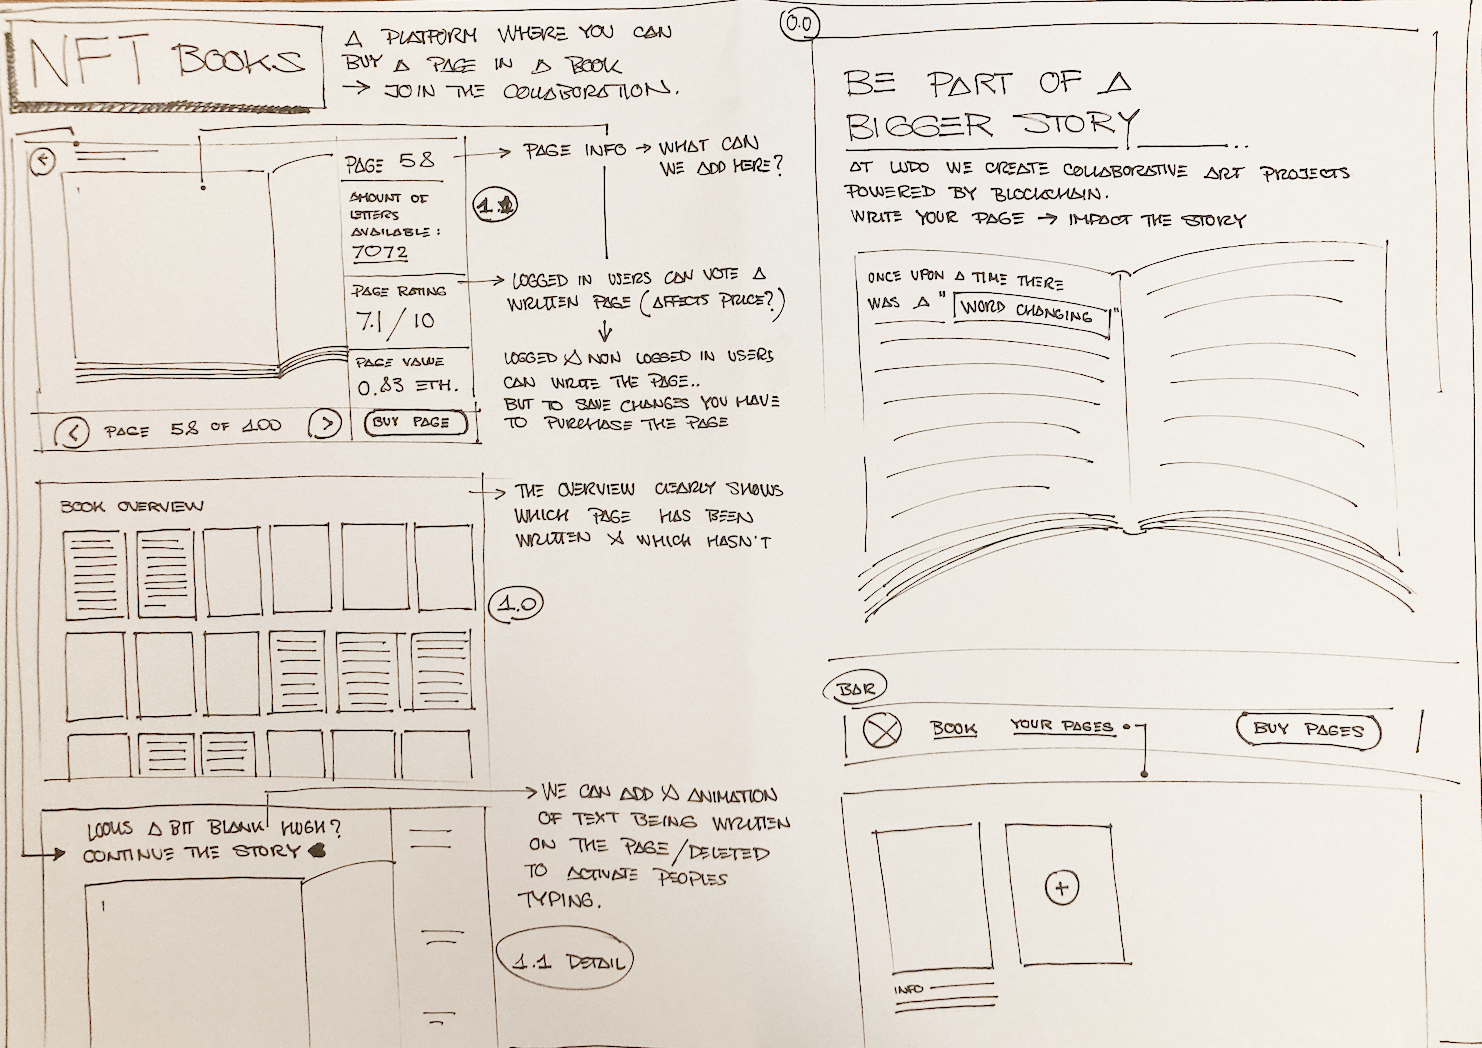 NFT BOOKS
A PLATFORM WHERE YOU CAN
BUY A PAGE IN A BOOK
→ JOIN THE COLLABORATION.
PAGE 58
AMOUNT OF
LETTERS
AVAILABLE:
7072
PAGE RATING
7.1/10
PAGE VALUE
0.83 ETH.
PAGE 58 OF 100
BUY PAGE
PAGE INFO → WHAT CAN
WE ADD HERE?
1.1
LOGGED IN USERS CAN VOTE A
WRITTEN PAGE (AFFECTS PRICE?)
LOGGED & NON LOGGED IN USERS
CAN WRITE THE PAGE..
BUT TO SAVE CHANGES YOU HAVE
TO PURCHASE THE PAGE
BOOK OVERVIEW
THE OVERVIEW CLEARLY SHOWS
WHICH PAGE HAS BEEN
WRITTEN & WHICH HASN'T
1.0
LOOKS A BIT BLANK HUGH?
CONTINUE THE STORY
WE CAN ADD A ANIMATION
OF TEXT BEING WRITTEN
ON THE PAGE/DELETED
TO ACTIVATE PEOPLES
TYPING.
1.1 DETAIL
0.0
BE PART OF A
BIGGER STORY
AT LUDO WE CREATE COLLABORATIVE ART PROJECTS
POWERED BY BLOCKCHAIN.
WRITE YOUR PAGE → IMPACT THE STORY
ONCE UPON A TIME THERE
WAS A "WORD CHANGING"
BAR
BOOK YOUR PAGES BUY PAGES
INFO